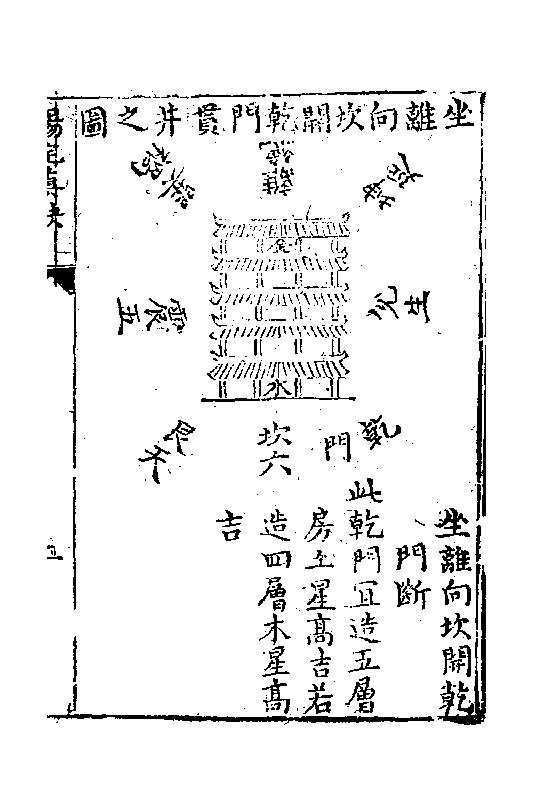 坐離向坎開乾門貫井之圖
離絕
坤
巽禍
兌生
震五
艮天
坎六
乾門
金
水
坐離向坎開乾
門斷
此乾門宜造五層
房土星高吉若
造四層木星高
吉